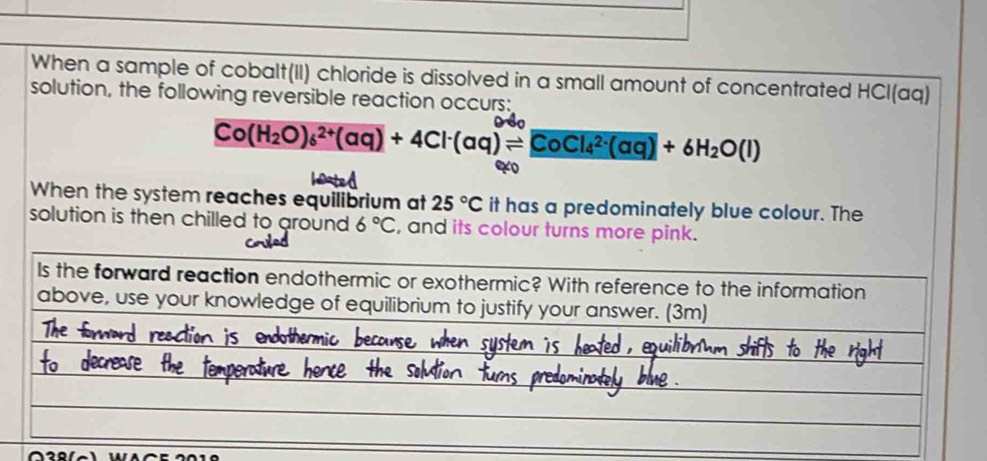 When a sample of cobalt(II) chloride is dissolved in a small amount of concentrated HCl(aq)
solution, the following reversible reaction occurs:
endo
Co(H₂O)₆²⁺(aq) + 4Cl⁻(aq) ⇌ CoCl₄²⁻(aq) + 6H₂O(l)
exo
heated
When the system reaches equilibrium at 25 °C it has a predominately blue colour. The
solution is then chilled to around 6 °C, and its colour turns more pink.
cooled
Is the forward reaction endothermic or exothermic? With reference to the information
above, use your knowledge of equilibrium to justify your answer. (3m)
The forward reaction is endothermic because when system is heated, equilibrium shifts to the right
to decrease the temperature hence the solution turns predominately blue.
Q38(c) WACE